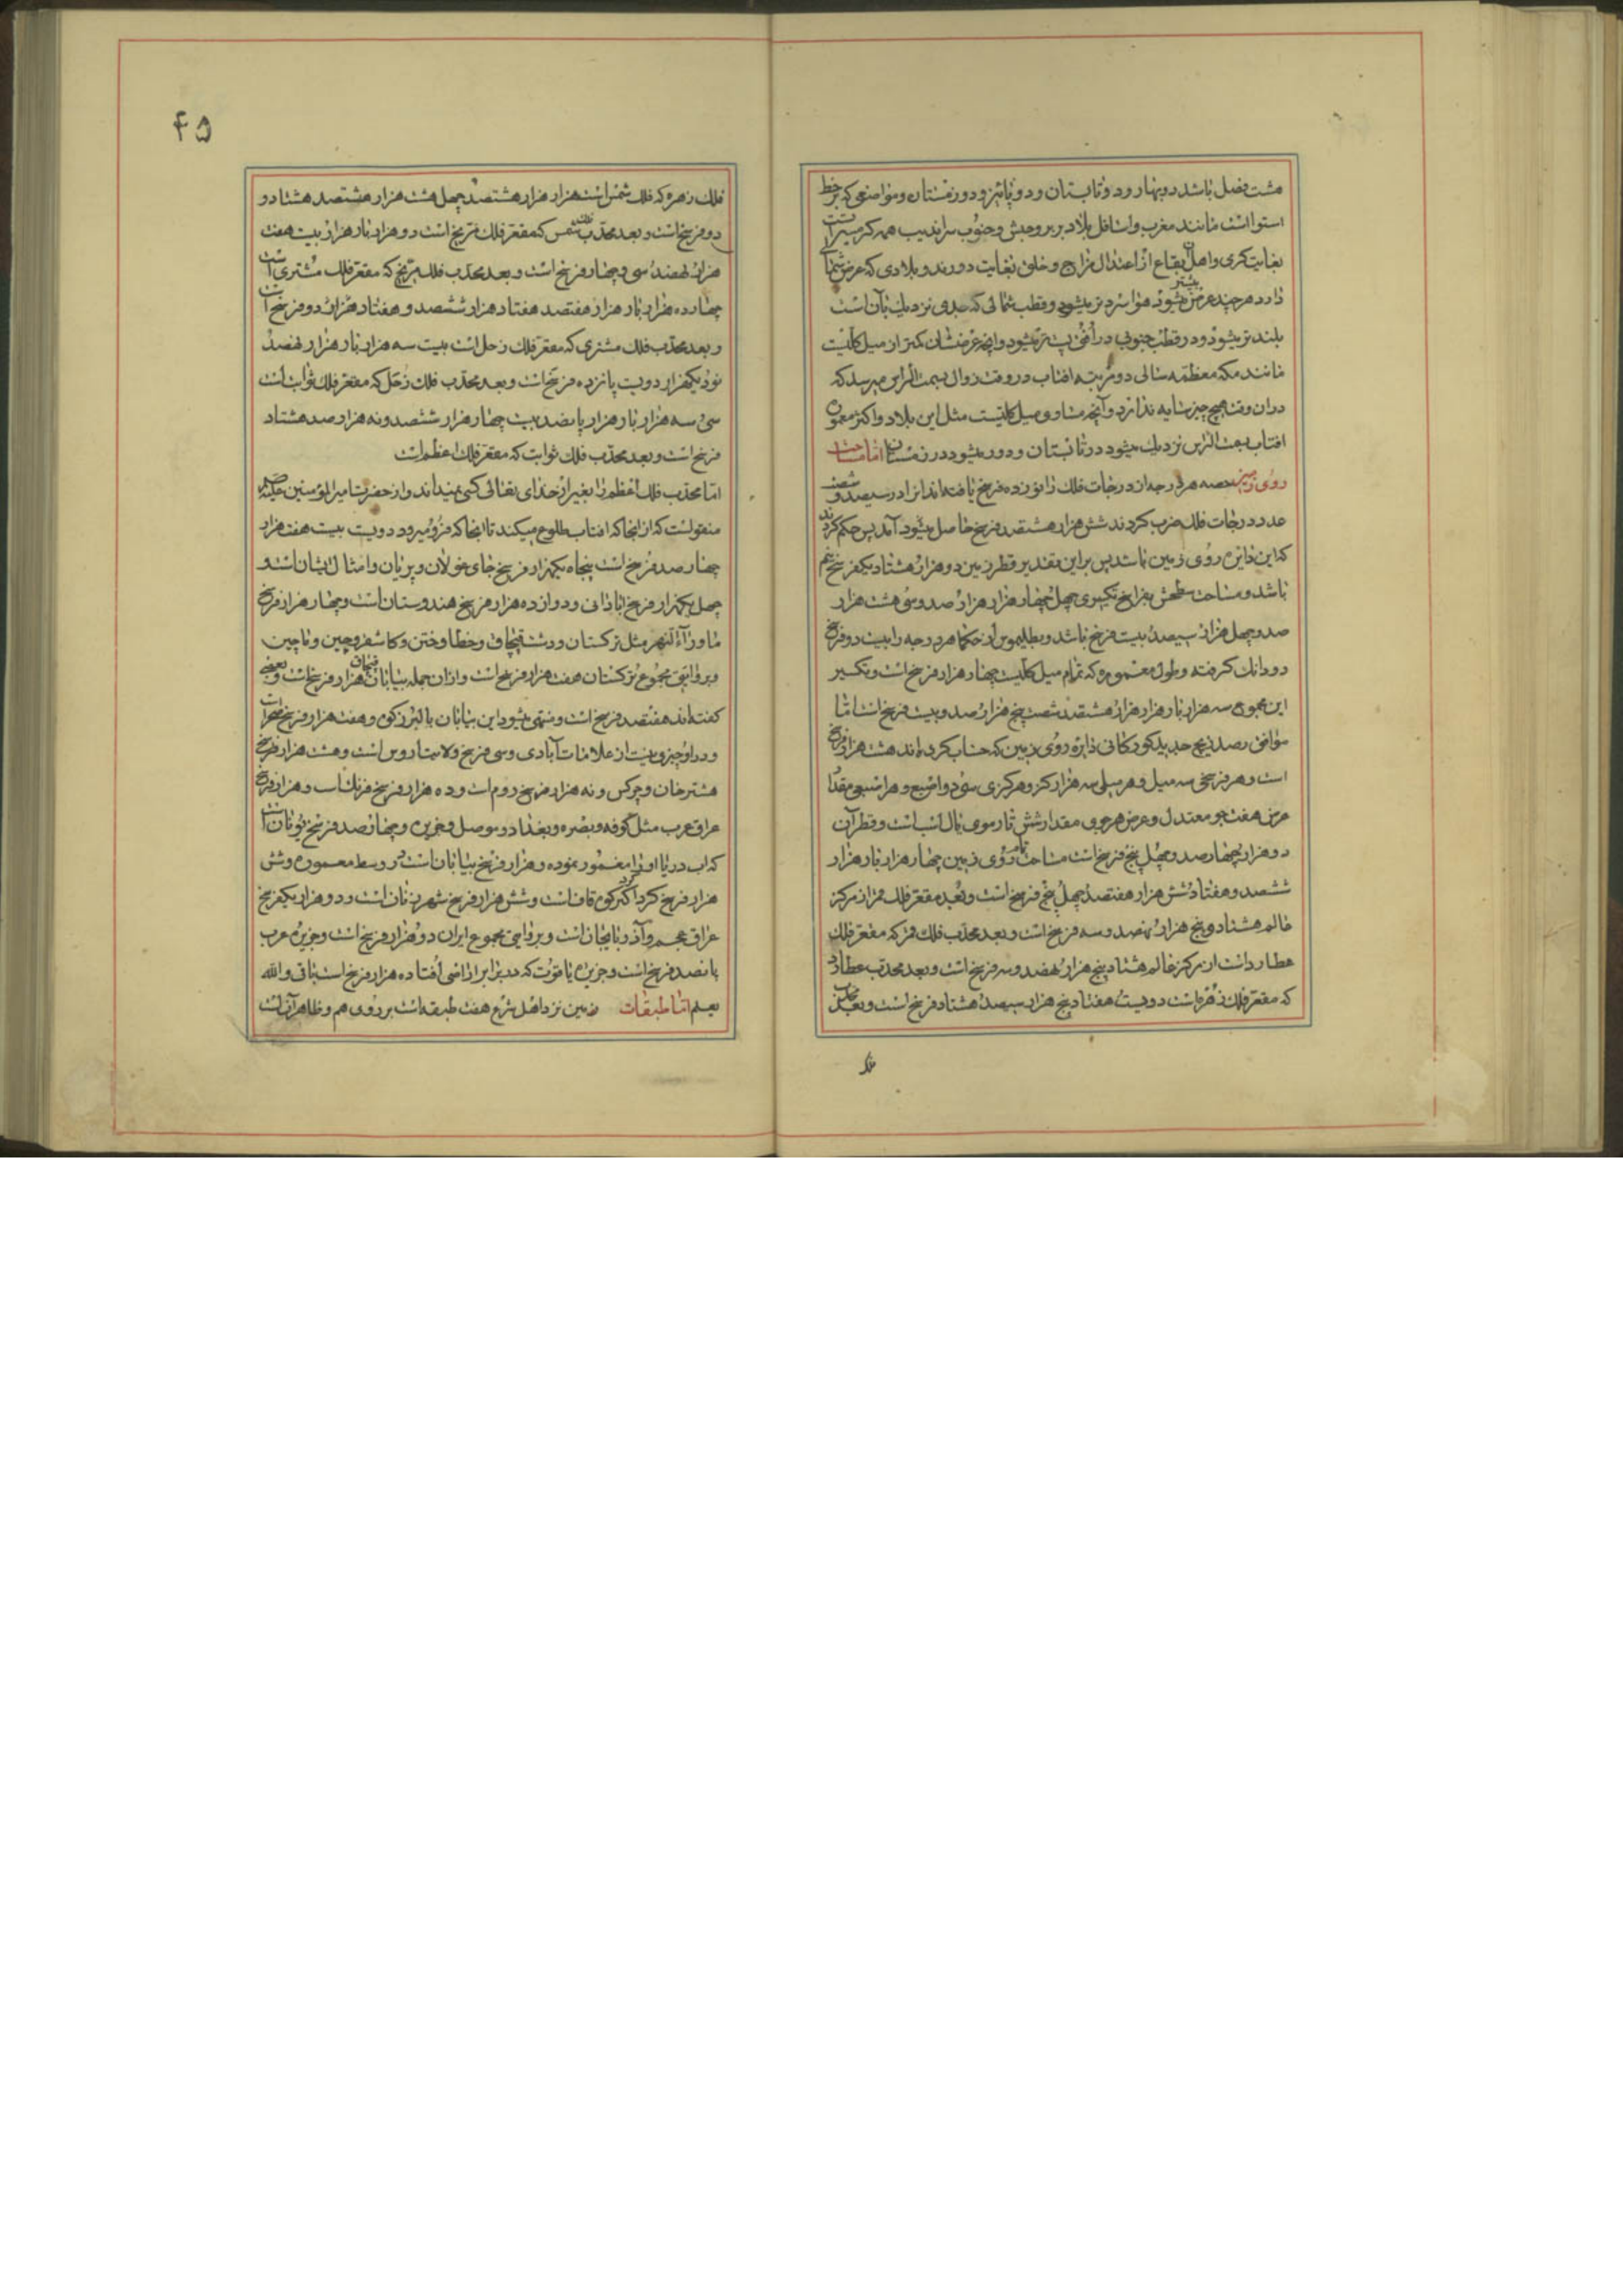 هشت فصل باشد دو بهار و دو تابستان و دو پائیز و دو زمستان و مواضعی که بر خط
استواست مانند مغرب و اسافل بلاد بربر و حبش و جنوب سراندیب همه گرمسیر است
بغایت گرمی و اهل آن بقاع از اعتدال مزاج و خلق بغایت دورند و بلادی که عرض شمالی
دارد هر چند عرض بیشتر میشود هوا سردتر میشود و قطب شمالی که جدی نزدیک بآن است
بلندتر میشود و در قطب جنوبی در افق پست تر میشود و آنچه عرضشان کمتر از میل کلیست
مانند مکه معظمه سالی دو مرتبه افتاب در وقت زوال بسمت الراس میرسد که
دران وقت هیچ چیز سایه ندارد و آنچه مساوی میل کلیست مثل این بلاد و اکثر معموره
افتاب بسمت الراس نزدیک میشود در تابستان و دور میشود در زمستان اما مساحت
روی زمین حصه هر درجه از درجات فلک را نوزده فرسخ یافته اند انرا در سیصد و شصت
عدد درجات فلک ضرب کردند شش هزار هشتصد فرسخ حاصل میشود آمد پس حکم کردند
که این دایره روی زمین باشد پس براین تقدیر قطر زمین دو هزار هشتاد یکفرسخ نیم
باشد و مساحت سطحش بفراسخ تکسیری چهل چهار هزار هزار صد و سی هشت هزار
صد و چهل هزار سیصد بیست فرسخ باشد و بطلیموس از حکما هر درجه را بیست دو فرسخ
دو دانک گرفته و طول معموره که تمام میل کلیست چهار هزار فرسخ است و تکسیر
این مجموع سه هزار بار هزار هزار هشتصد شصت پنج هزار صد و بیست فرسخ است اما
موافق رصد زیج جدید کورکانی دایره روی زمین که حساب کرده اند هشت هزار فرسخ
است و هر فرسخی سه میل و هر میلی سه هزار گز و هر گزی سی دو اصبع و هر اصبعی مقدار
عرض هفت جو معتدل و عرض هر جوی مقدار شش تار موی یال اسب است و قطر آن
دو هزار چهارصد و چهل پنج فرسخ است مساحت تمام روی زمین چهار هزار بار هزار
ششصد و هفتاد شش هزار هفتصد چهل پنج فرسخ است و بعد مقعر فلک قمر از مرکز
عالم هشتاد و پنج هزار نهصد و سه فرسخ است و بعد محدب فلک قمر که مقعر فلک
عطارد است از مرکز عالم هشتاد پنج هزار هفصد و سه فرسخ است و بعد محدب عطارد
که مقعر فلک زهره است دویست هفتاد پنج هزار سیصد هشتاد فرسخ است و بعد محدب
فلک
۴۵
فلک زهره که فلک شمس است هزار هزار هشتصد چهل هشت هزار هشتصد هشتاد و
دو فرسخ است و بعد محدب فلک شمس که مقعر فلک مریخ است دو هزار بار هزار بیست هفت
هزار نهصد سی و چهار فرسخ است و بعد محدب فلک مریخ که مقعر فلک مشتری است
چهارده هزار بار هزار هفتصد هفتاد هزار ششصد و هفتاد هزار دو فرسخ است
و بعد محدب فلک مشتری که مقعر فلک زحل است بیست سه هزار بار هزار نهصد
نود یکهزار دویست پانزده فرسخ است و بعد محدب فلک زحل که مقعر فلک ثوابت است
سی سه هزار بار هزار پانصد بیست چهار هزار ششصد و نه هزار صد هشتاد
فرسخ است و بعد محدب فلک ثوابت که مقعر فلک اعظم است
اما محدب فلک اعظم را بغیر از خدای تعالی کسی نمیداند و از حضرت امیر المؤمنین علیه
منقولست که از انجا که افتاب طلوع میکند تا انجا که فرو میرود دویست بیست هفت هزار
چهار صد فرسخ است پنجاه یکهزار فرسخ جای غولان و پریان و امثال ایشان است و
چهل یکهزار فرسخ ابادانی و دوازده هزار فرسخ هندوستان است و چهار هزار فرسخ
ماوراء النهر مثل ترکستان و دشت قبچاق و خطا و ختن و کاشغر و چین و ماچین
و بروایتی مجموع ترکستان هفت هزار فرسخ است و ازان جمله بیابان قبچاق هزار فرسخ است و بعضی
گفته اند هفتصد فرسخ است و منتهی میشود این بیابان بالبرز کوه و هفت هزار فرسخ صحرا است
و درو چیزی نیست از علامات آبادی و سی فرسخ ولایت اروس است و هشت هزار فرسخ
هشترخان و چرکس و نه هزار فرسخ روم است و ده هزار فرسخ فرنک است و هزار فرسخ
عراق عرب مثل کوفه و بصره و بغداد و موصل و جزیره و چهار صد فرسخ یونان است
که اب دریا او را مغمور نموده و هزار فرسخ بیابان است در وسط معموره و شش
هزار فرسخ گرداگرد کوه قاف است و شش هزار فرسخ شهر زنان است و دو هزار یکفرسخ
عراق عجم و آذربایجان است و بروایتی مجموع ایران دو هزار فرسخ است و جزیره عرب
پانصد فرسخ است و جزیره یاقوت که در برابر اراضی افتاده هزار فرسخ است باقی و الله
یعلم اما طبقات زمین نزد اهل شرع هفت طبقه است بر روی هم و ظاهر آن است